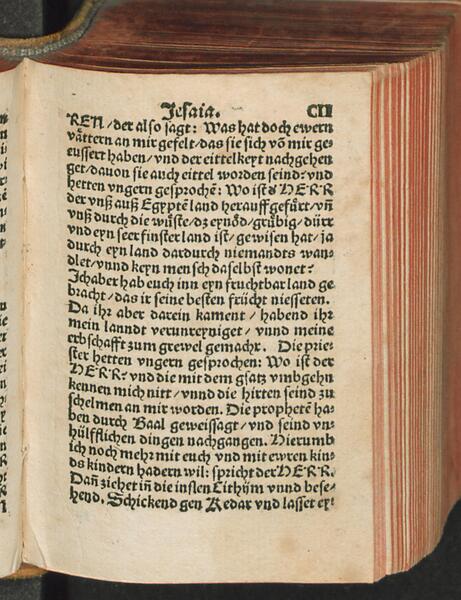 Jesaia. CII
REN / der also sagt: Was hat doch ewern
våttern an mir gefelt / das sie sich võ mir ge
eussert haben / vnd der eittelkeyt nachgehen
get / davon sie auch eittel worden seind: vnd
hetten vngern gesprochē: Wo ist d HERR
der vnß auß Egyptē land herauff gefürt / vñ
vnß durch die wüste / dz eynöd / grübig / dürr
vnd eyn seer finster land ist / gewisen hat / ja
durch eyn land dardurch niemandts wan-
dlet / vnnd keyn mensch daselbst wonet?
Ich aber hab euch inn eyn fruchtbar land ge
bracht / das ir seine besten frücht niesseten.
Da ihr aber darein kament / habend ihr
mein lanndt verunreyniget / vnnd meine
erbschafft zum grewel gemacht. Die prie-
ster hetten vngern gesprochen: Wo ist der
HERR? vnd die mit dem gsatz vmbgehn
kennen mich nitt / vnnd die hirten seind zu
schelmen an mir worden. Die prophetē ha-
ben durch Baal geweissagt / vnd seind vn-
hülfflichen dingen nachgangen. Hierumb
ich noch mehr mit euch vnd mit ewren kin-
ds kindern hadern wil: spricht der HERR.
Dañ ziehet iñ die inslen Cithijm vnnd bese-
hend. Schickend gen Kedar vnd lasset ey-